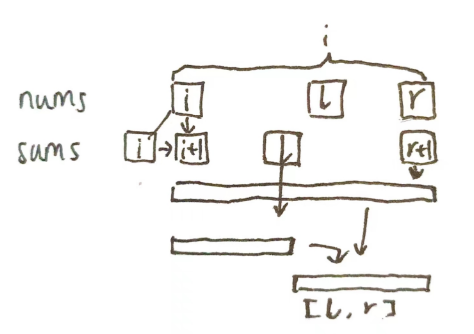 i
nums i l r
sums i i+1 l r+1
[l, r]